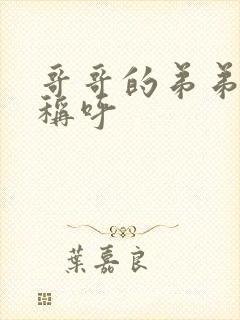 哥哥的弟弟
稱呼
葉嘉良